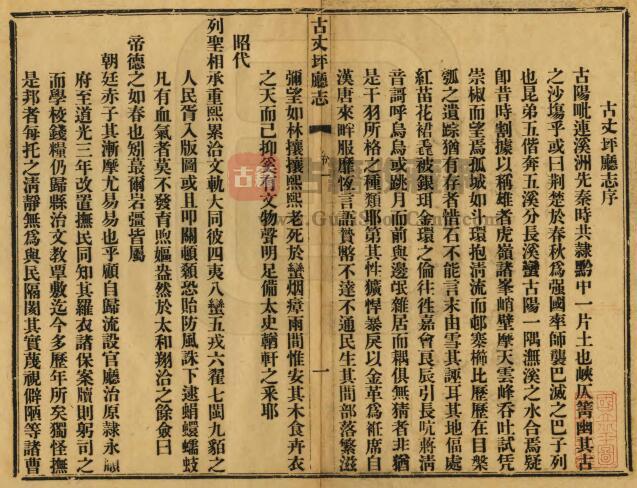 古丈坪廳志序
古陽毗連溪洲先秦時共隸黔中一片土也峽㕥箐幽其古
之沙塲乎或曰荆楚於春秋爲强國率師襲巴滅之巴子列
也昆弟五偕奔五溪分長溪蠻古陽一隅潕溪之水合焉疑
卽昔時割據以稱雄者虎嶺諸峯峭壁摩天雲峰呑吐試凭
崇椒而望焉孤城如斗環抱淸流而邨寨櫛比歷歷在目槃
瓠之遺踪猶有存者惜石不能言末由雪其誣耳其地偪處
紅苗花裙毳被銀珥金環之倫往徃嘉會良辰引長吭將淸
音謌呼烏烏或跳月而前與邊氓雜居而耦俱無猜者非猶
是干羽所格之種類耶第其性獷悍暴戾以金革爲袵席自
漢唐來畔服靡恆言語贄幣不達不通民生其間部落繁滋
古丈坪廳志
一
彌望如林攘攘熙熙老死於蠻烟瘴雨間惟安其木食卉衣
之天而已抑奚有文物聲明足備太史輶軒之釆耶
昭代
列聖相承重熙累洽文軌大同彼四夷八蠻五戎六翟七閩九貊之
人民胥入版圖或且叩關頓顙恐貽防風誅下逮蜎蠉蠕蚑
凡有血氣者莫不發育煦嫗盎然於太和翔洽之餘僉曰
帝德之如春也矧最爾岩疆皆屬
朝廷赤子其漸摩尤易易也乎顧自歸流設官廳治原隸永順
府至道光三年改置撫民同知其羅衣諸保案牘則躬司之
而學校錢糧仍歸縣治文教覃敷迄今多歷年所矣獨怪撫
是邦者每托之淸靜無爲與民隔閡其實蔑視僻陋等諸曹